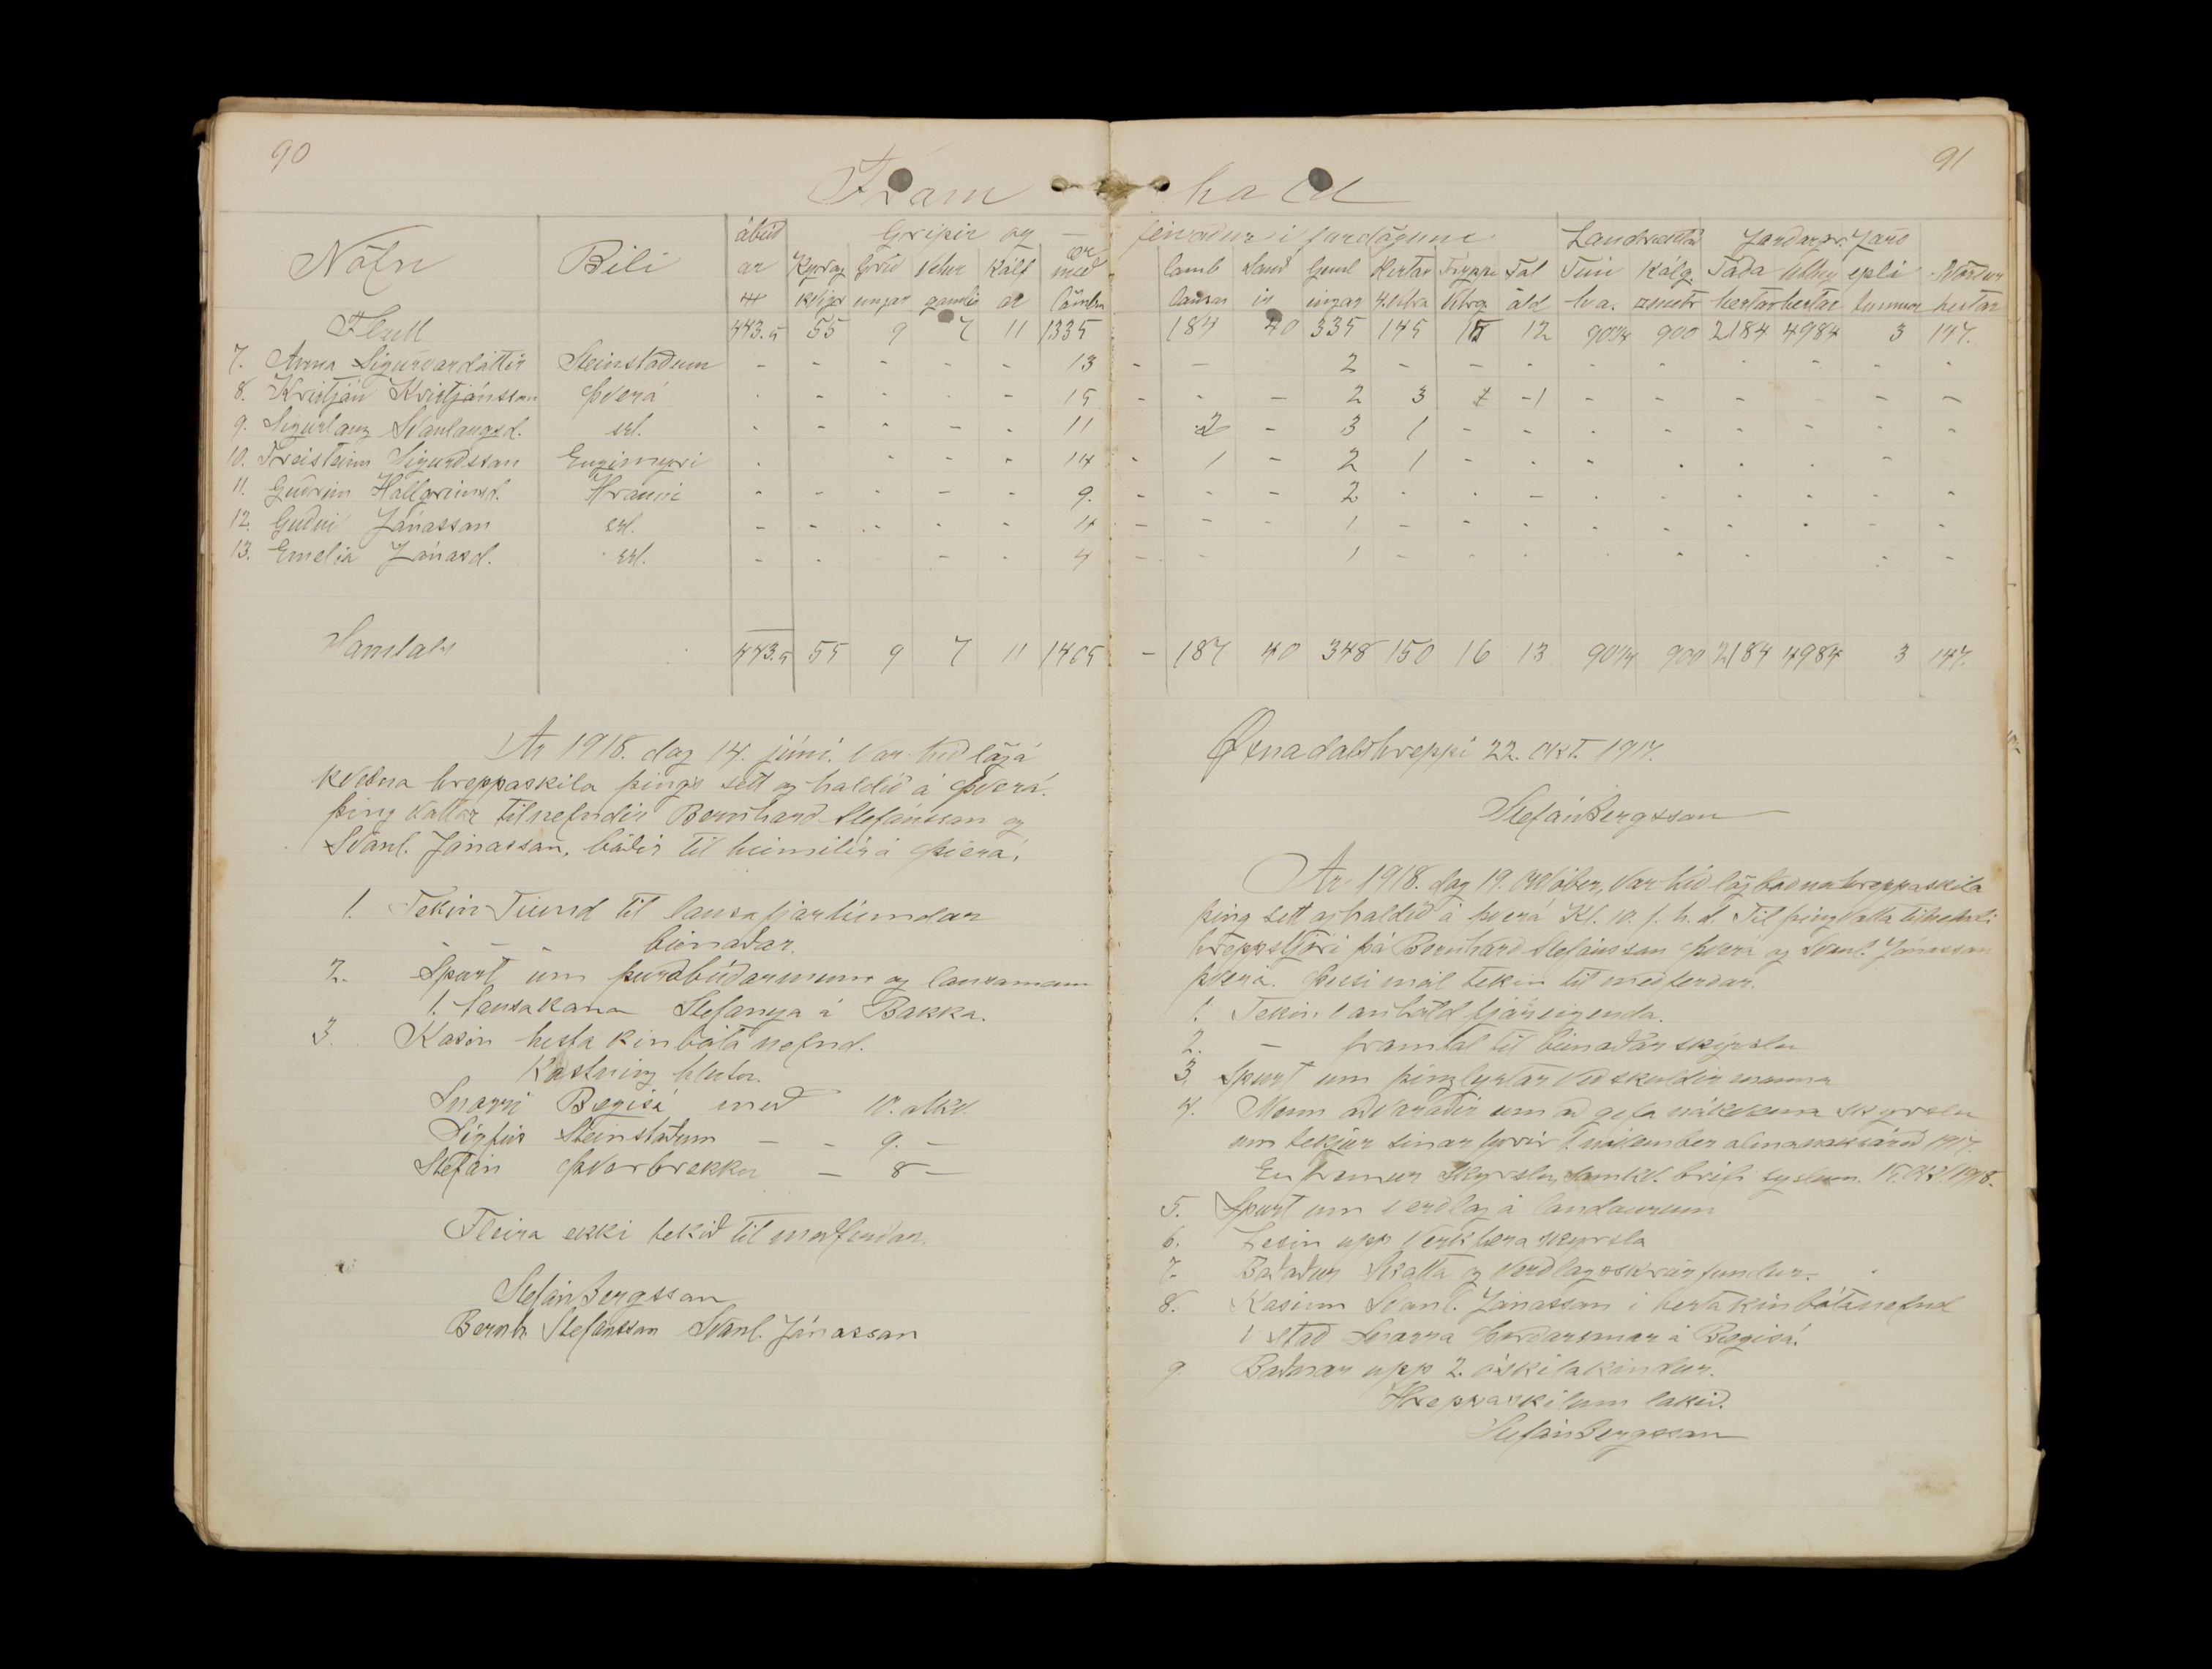 90
91
Fram hald
Nöfn Býli ábúð Gripir og fénaður í fardögum Landrækt Jarðargr. Jarð
ar Kýr og Grið Vetur Kálf ær með lamb Sauð Geml Hestar Tryppi Fol Tún Kálg. Taða úthey epli Mótur
kvígur ungar gamlir ar lömbu lausar ir ingar 4. vetra vetrg öld ha. metr hestar hestar tunnur hestar
Flutt 443.5 55 9 7 11 1335 184 40 335 145 15 12 90¼ 900 2184 4984 3 147.
7. Anna Sigurðardóttir Steinstöðum - - - - - 13 - - 2 - - - - - - - - -
8. Kristján Kristjánsson Þverá - - - - - 15 - - - 2 3 1 -1 - - - - - -
9. Sigurlaug Svanlaugsd. sst. - - - - - 11 - 2 - 3 1 - - - - - - - -
10. Freisteinn Sigurðsson Engimýri - - - - - 14 - 1 - 2 1 - - - - - - -
11. Guðrún Hallgrímsd. Hrauni - - - - - 9. - - - 2 - - - - - - - - -
12. Guðni Jónasson sst. - - - - - 4 - - - 1 - - - - - - - - -
13. Emelía Jónasd. sst. - - - - - 4 - - 1 - - - - - - - -
Samtals 443.5 55 9 7 11 1405 - 187 40 348 150 16 13 90¼ 900 2184 4984 3 147.
Ár 1918. dag 14. júní. Var hið lögá
kveðna hreppaskila þings sett og haldið á Þverá.
þing vottar tilnefndir Bernharð Stefánsson og
Svanl. Jónasson, báðir til heimilis á Þverá.
1. Tekin Tíund til lausafjartíundar
- - - búnaðar.
2. Spurt um þurrabúðarmenn og lausamenn
1. lausakona Stefanya á Bakka.
3. Kosin hesta kinbóta nefnd.
Kostning hlutu.
Snorri Bægisá með 10. atkv.
Sigfús Steinstöðum - - 9. -
Stefán Þverbrekku - 8 -
Fleira ekki tekið til meðferðar.
Stefán Bergsson
Bernh. Stefánsson Svanl. Jónasson
Öxnadalshreppi 22. okt. 1917.
Stefán Bergsson
Ár 1918. dag 19. október, var hið lögboðna hreppaskila
þing sett og haldið á Þverá Kl. 10. f. h. d. Til þingvotta tilnefndi
hreppstjóri þá Bernharð Stefánsson Þverá og Svanl. Jónasson
Þverá. Þessi mál tekin til meðferðar.
1. Tekin vanhöld fjáreigenda.
2. - framtal til búnaðarskýrslu
3. Spurt um þinglystar veðskuldir manna
4. Menn aðvaraðir um að gefa nákvæma skýrslu
um tekjur sínar fyrir almanaksárið 1917.
Enfremur skýrslu, samkv. bréfi syslum. 15. okt. 1918.
5. Spurt um verðlag á landaurum
6. Lesin upp verkfæra skýrsla
7. Boðaður Skatta og verðlagsskrár fundur.
8. Kosinn Svanl. Jónasson í hestakinbótanefnd
í stað Snorra Þórðarsonar á Bægisá.
9. Boðnar upp 2. óskilakindur.
Hreppaskilum lokið.
Stefán Bergsson